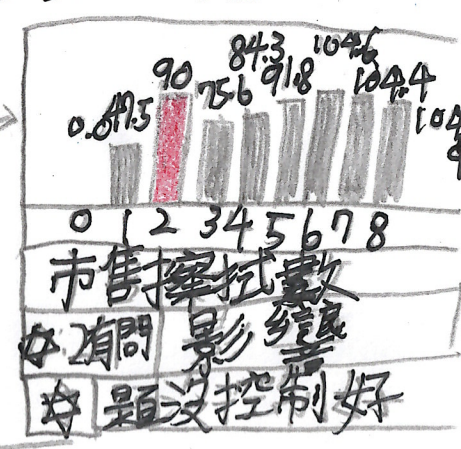 0.0 47.5 90 75.6 84.3 91.8 104.6 104.4 104.4
0 1 2 3 4 5 6 7 8
市售擦拭數
☆2有問 影響
☆ 題沒控制好